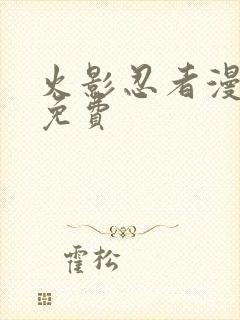 火影忍者漫
免費
霍松